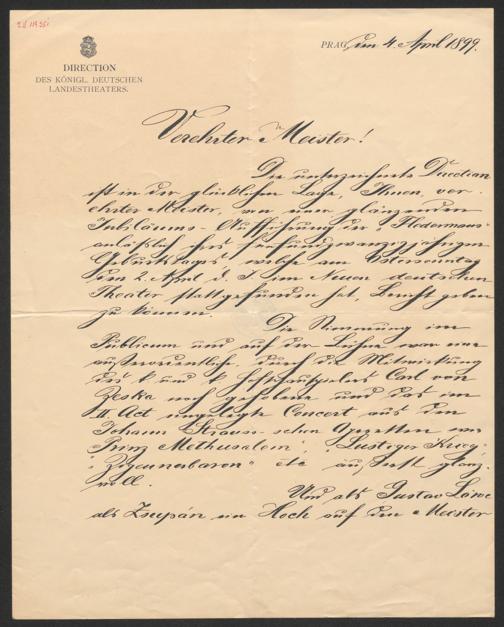 DIRECTION
DES KÖNIGL. DEUTSCHEN
LANDESTHEATERS.
PRAG, am 4. April 1899.
Verehrter Meister!
Die unterzeichnete Direction
ist in der glücklichen Lage, Ihnen, ver-
ehrter Meister, von einer glänzenden
Jubiläums-Aufführung der "Fledermaus"
anläßlich des fünfundzwanzigjährigen
Geburtstages welche am Ostersonntag
den 2. April d. J. im Neuen deutschen
Theater stattgefunden hat, Bericht geben
zu können.
Die Stimmung im
Publicum und auf der Bühne war eine
außerordentliche, durch die Mitwirkung
des k und k Hofschauspielers Carl von
Zeska noch gehobene und das im
II. Act eingelegte Concert aus den
Johann Strauss-schen Operetten wie
"Prinz Methusalem", "Lustiger Krieg",
"Zigeunerbaron" etc äußerst glanz-
voll.
Und als Gustav Löwe
als Zsupán ein Hoch auf den Meister